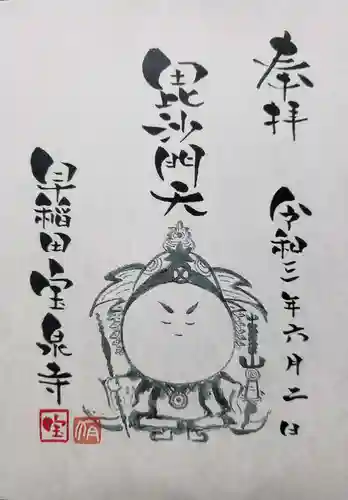 奉拝
令和二年六月二日
毘沙門天
早稲田宝泉寺
宝